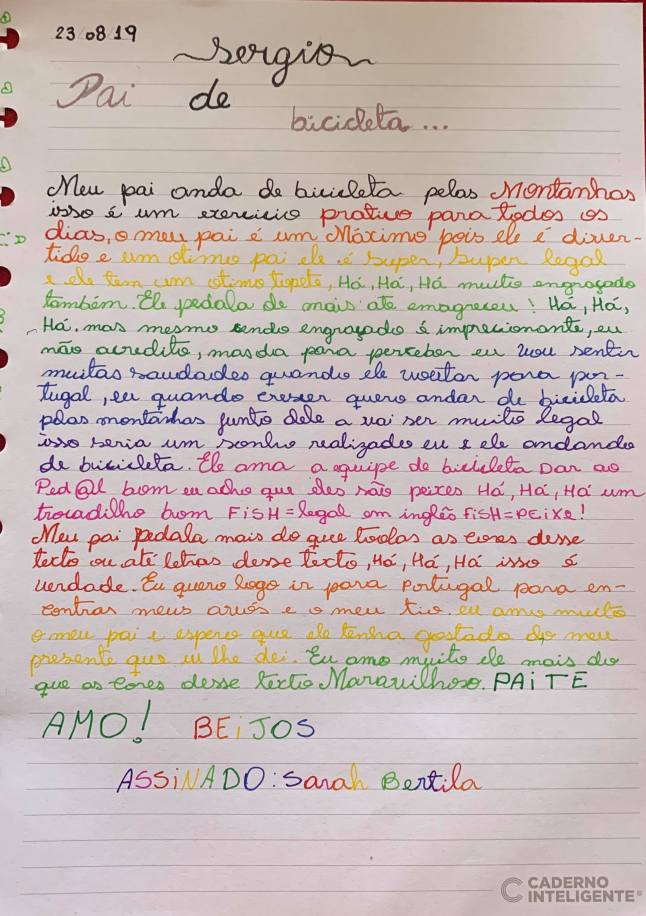 23/08/19
Sergio
Pai de
bicicleta...
Meu pai anda de bicicleta pelas Montanhas
isso é um exercicio pratico para todos os
dias, o meu pai é um Máximo pois ele é diver-
tido e um otimo pai ele é super, super legal
e ele tem um otimo topete, Há, Há, Há muito engraçado
também. Ele pedala de mais ate emagreceu! Há, Há,
Há. mas mesmo sendo engraçado é imprecionante, eu
não acredito, mas da para perceber eu vou sentir
muitas saudades quando ele voltar para por-
tugal, eu quando crescer quero andar de bicicleta
pelas montanhas junto dele a vai ser muito legal
isso seria um sonho realizado eu e ele andando
de bicicleta. Ele ama a equipe de bicicleta Dar ao
Ped@l bom eu acho que eles são peixes Há, Há, Há um
trocadilho bom FiSH=legal em inglês FiSH=PEiXE!
Meu pai pedala mais do que todas as cores desse
texto ou até letras desse texto, Há, Há, Há isso é
verdade. Eu quero logo ir para Portugal para en-
contras meus avós e o meu tio, eu amo muito
o meu pai e espero que ele tenha gostado do meu
presente que eu lhe dei. Eu amo muito ele mais do
que as cores desse texto Maravilhoso. PAi TE
AMO! BEiJOS
ASSiNADO: Sarah Bertila
CADERNO
INTELIGENTE®